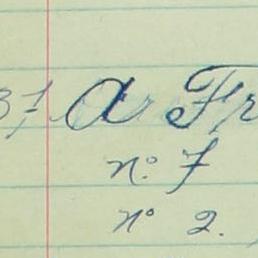 37 A Fr
n° 7
n° 2.